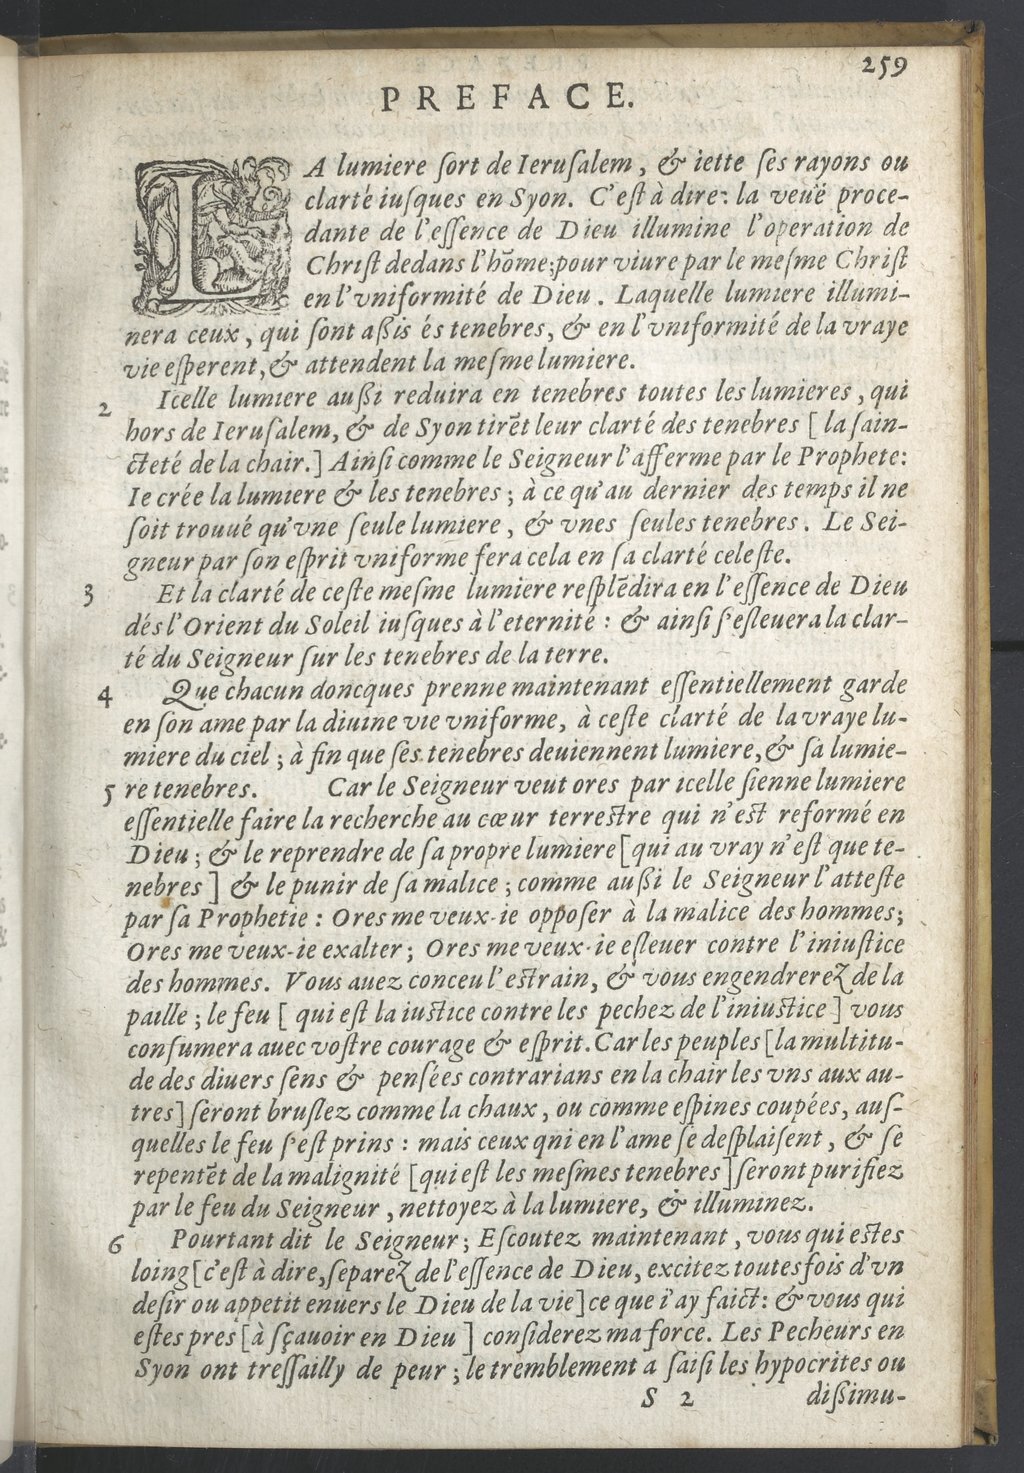 259
PREFACE.
LA lumiere ſort de Ieruſalem, & iette ſes rayons ou
clarté iuſques en Syon. C'eſt à dire: la veuë proce-
dante de l'eſſence de Dieu illumine l'operation de
Chriſt dedans l'hõme; pour viure par le meſme Chriſt
en l'vniformité de Dieu. Laquelle lumiere illumi-
nera ceux, qui ſont aßis és tenebres, & en l'vniformité de la vraye
vie eſperent, & attendent la meſme lumiere.
2 Icelle lumiere außi reduira en tenebres toutes les lumieres, qui
hors de Ieruſalem, & de Syon tirẽt leur clarté des tenebres [la ſain-
cteté de la chair.] Ainſi comme le Seigneur l'afferme par le Prophete:
Ie crée la lumiere & les tenebres; à ce qu'au dernier des temps il ne
ſoit trouué qu'vne ſeule lumiere, & vnes ſeules tenebres. Le Sei-
gneur par ſon eſprit vniforme fera cela en ſa clarté celeſte.
3 Et la clarté de ceſte meſme lumiere reſplẽdira en l'eſſence de Dieu
dés l'Orient du Soleil iuſques à l'eternité: & ainſi s'eſleuera la clar-
té du Seigneur ſur les tenebres de la terre.
4 Que chacun doncques prenne maintenant eſſentiellement garde
en ſon ame par la diuine vie vniforme, à ceſte clarté de la vraye lu-
miere du ciel; à fin que ſes tenebres deuiennent lumiere, & ſa lumie-
5 re tenebres. Car le Seigneur veut ores par icelle ſienne lumiere
eſſentielle faire la recherche au cœur terreſtre qui n'eſt reformé en
Dieu; & le reprendre de ſa propre lumiere [qui au vray n'eſt que te-
nebres] & le punir de ſa malice; comme außi le Seigneur l'atteſte
par ſa Prophetie: Ores me veux-ie oppoſer à la malice des hommes;
Ores me veux-ie exalter; Ores me veux-ie eſleuer contre l'iniuſtice
des hommes. Vous auez conceu l'eſtrain, & vous engendrerez de la
paille; le feu [qui eſt la iuſtice contre les pechez de l'iniuſtice] vous
conſumera auec voſtre courage & eſprit. Car les peuples [la multitu-
de des diuers ſens & penſées contrarians en la chair les vns aux au-
tres] ſeront bruſlez comme la chaux, ou comme eſpines coupées, auſ-
quelles le feu s'eſt prins: mais ceux qni en l'ame ſe deſplaiſent, & ſe
repentẽt de la malignité [qui eſt les meſmes tenebres] ſeront purifiez
par le feu du Seigneur, nettoyez à la lumiere, & illuminez.
6 Pourtant dit le Seigneur; Eſcoutez maintenant, vous qui eſtes
loing [c'eſt à dire, ſeparez de l'eſſence de Dieu, excitez toutesfois d'vn
deſir ou appetit enuers le Dieu de la vie] ce que i'ay faict: & vous qui
eſtes pres [à ſçauoir en Dieu] conſiderez ma force. Les Pecheurs en
Syon ont treſſailly de peur; le tremblement a ſaiſi les hypocrites ou
S 2 dißimu-